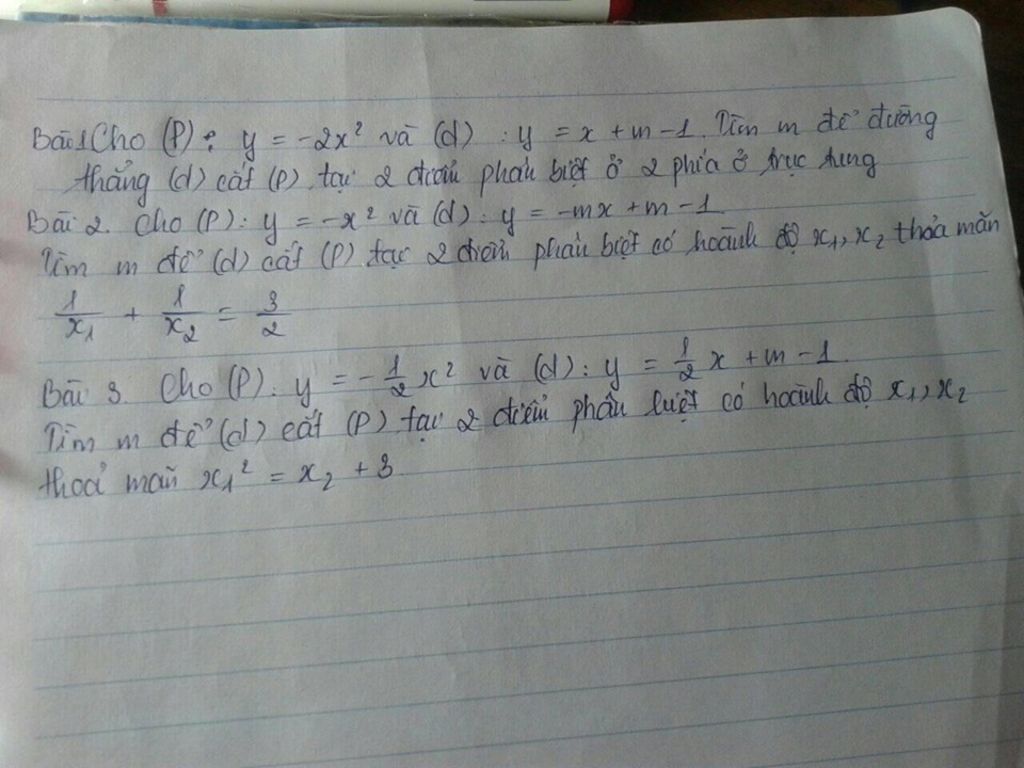 Bài 1 Cho (P): y = -2x² và (d): y = x + m - 1. Tìm m để đường
thẳng (d) cắt (P) tại 2 điểm phân biệt ở 2 phía ở trục tung
Bài 2. Cho (P): y = -x² và (d): y = -mx + m - 1
Tìm m để (d) cắt (P) tại 2 điểm phân biệt có hoành độ x₁, x₂ thỏa mãn
1/x₁ + 1/x₂ = 3/2
Bài 3. Cho (P): y = -1/2 x² và (d): y = 1/2 x + m - 1.
Tìm m để (d) cắt (P) tại 2 điểm phân biệt có hoành độ x₁, x₂
thoả mãn x₁² = x₂ + 3